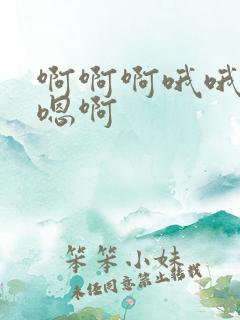 啊啊啊哦哦
嗯啊
笨笨小妹
未经同意禁止转载